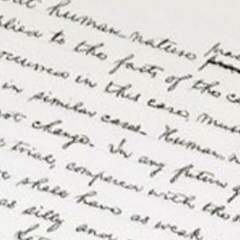 but human-nature
applied to the facts of the
occurred in this case, must
in similar cases. Human-n
not change. In any future g
trials, compared with this
shall have as weak
as silly and